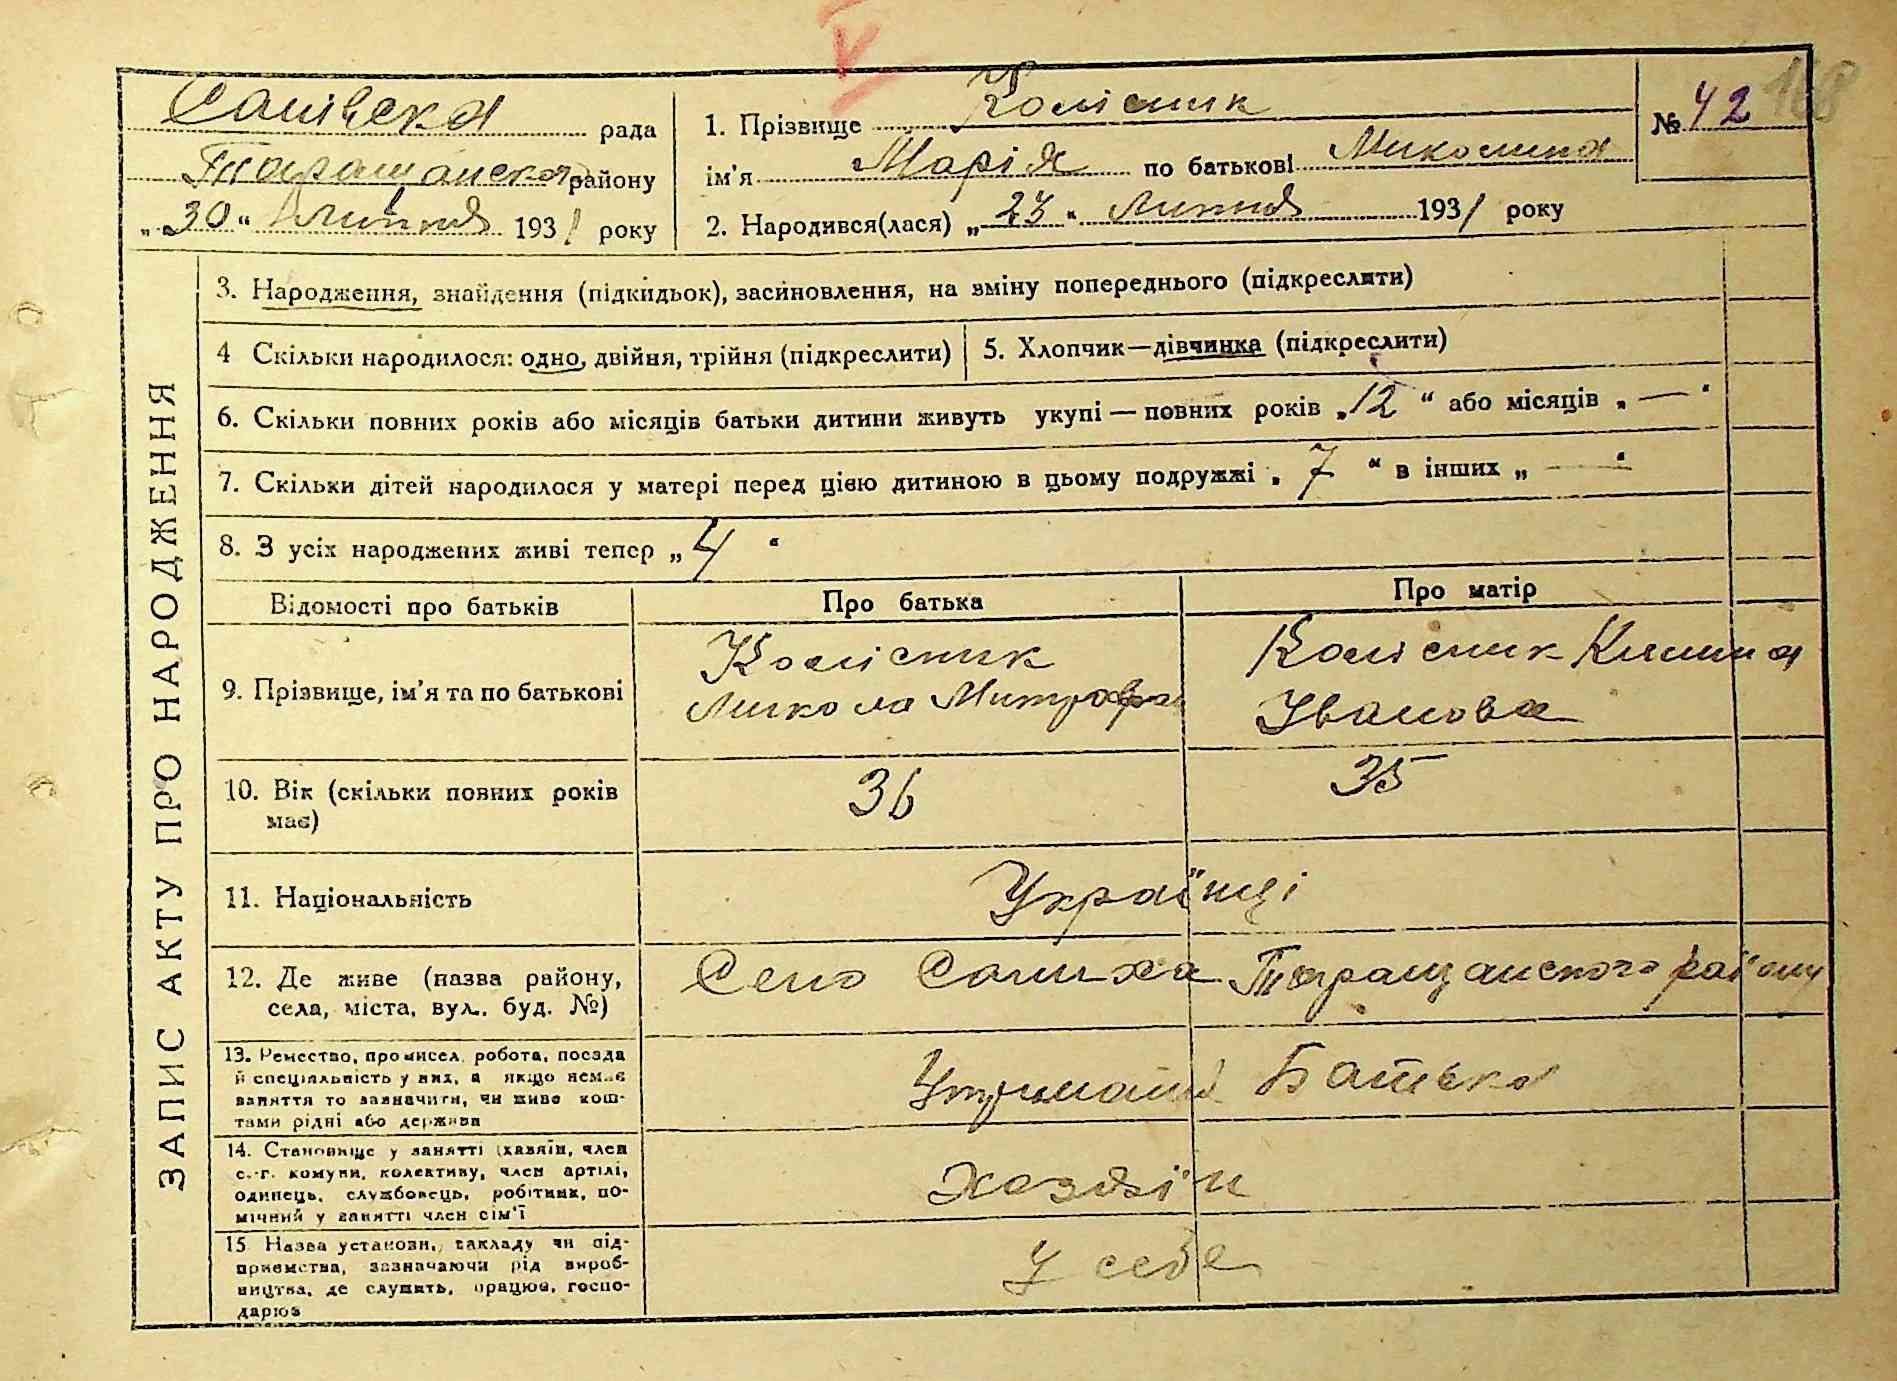 Салівська рада
Таращанского району
„30“ Липня 1931 року
1. Прізвище Колісник
ім'я Марія по батькові Миколина
2. Народився(лася) „23“ Липня 1931 року
№ 42
168
ЗАПИС АКТУ ПРО НАРОДЖЕННЯ
3. Народження, знайдення (підкидьок), засиновлення, на зміну попереднього (підкреслити)
4 Скільки народилося: одно, двійня, трійня (підкреслити)
5. Хлопчик—дівчинка (підкреслити)
6. Скільки повних років або місяців батьки дитини живуть укупі — повних років „12“ або місяців „—“
7. Скільки дітей народилося у матері перед цією дитиною в цьому подружжі „7“ в інших „—“
8. З усіх народжених живі тепер „4“
Відомості про батьків Про батька Про матір
9. Прізвище, ім'я та по батькові
Колісник
Микола Митроф
Колісник
Иванова
10. Вік (скільки повних років
має)
36
35
11. Національність
Українці
12. Де живе (назва району,
села, міста, вул.. буд. №)
Село Салиха Таращанского району
13. Ремество, промисел, робота, посада
й спеціяльність у них, а якщо немає
заняття то зазначити, чи живе кош-
тами рідні або держави
Утримані Батька
14. Становище у занятті (хазяїн, член
с.-г. комуни, колективу, член артілі,
одинець, службовець, робітник, по-
мічний у занятті член сім'ї
Хазяін
15 Назва установи, закладу чи під-
приємства, зазначаючи рід вироб-
ництва, де служить, працює, госпо-
дарює
У себе